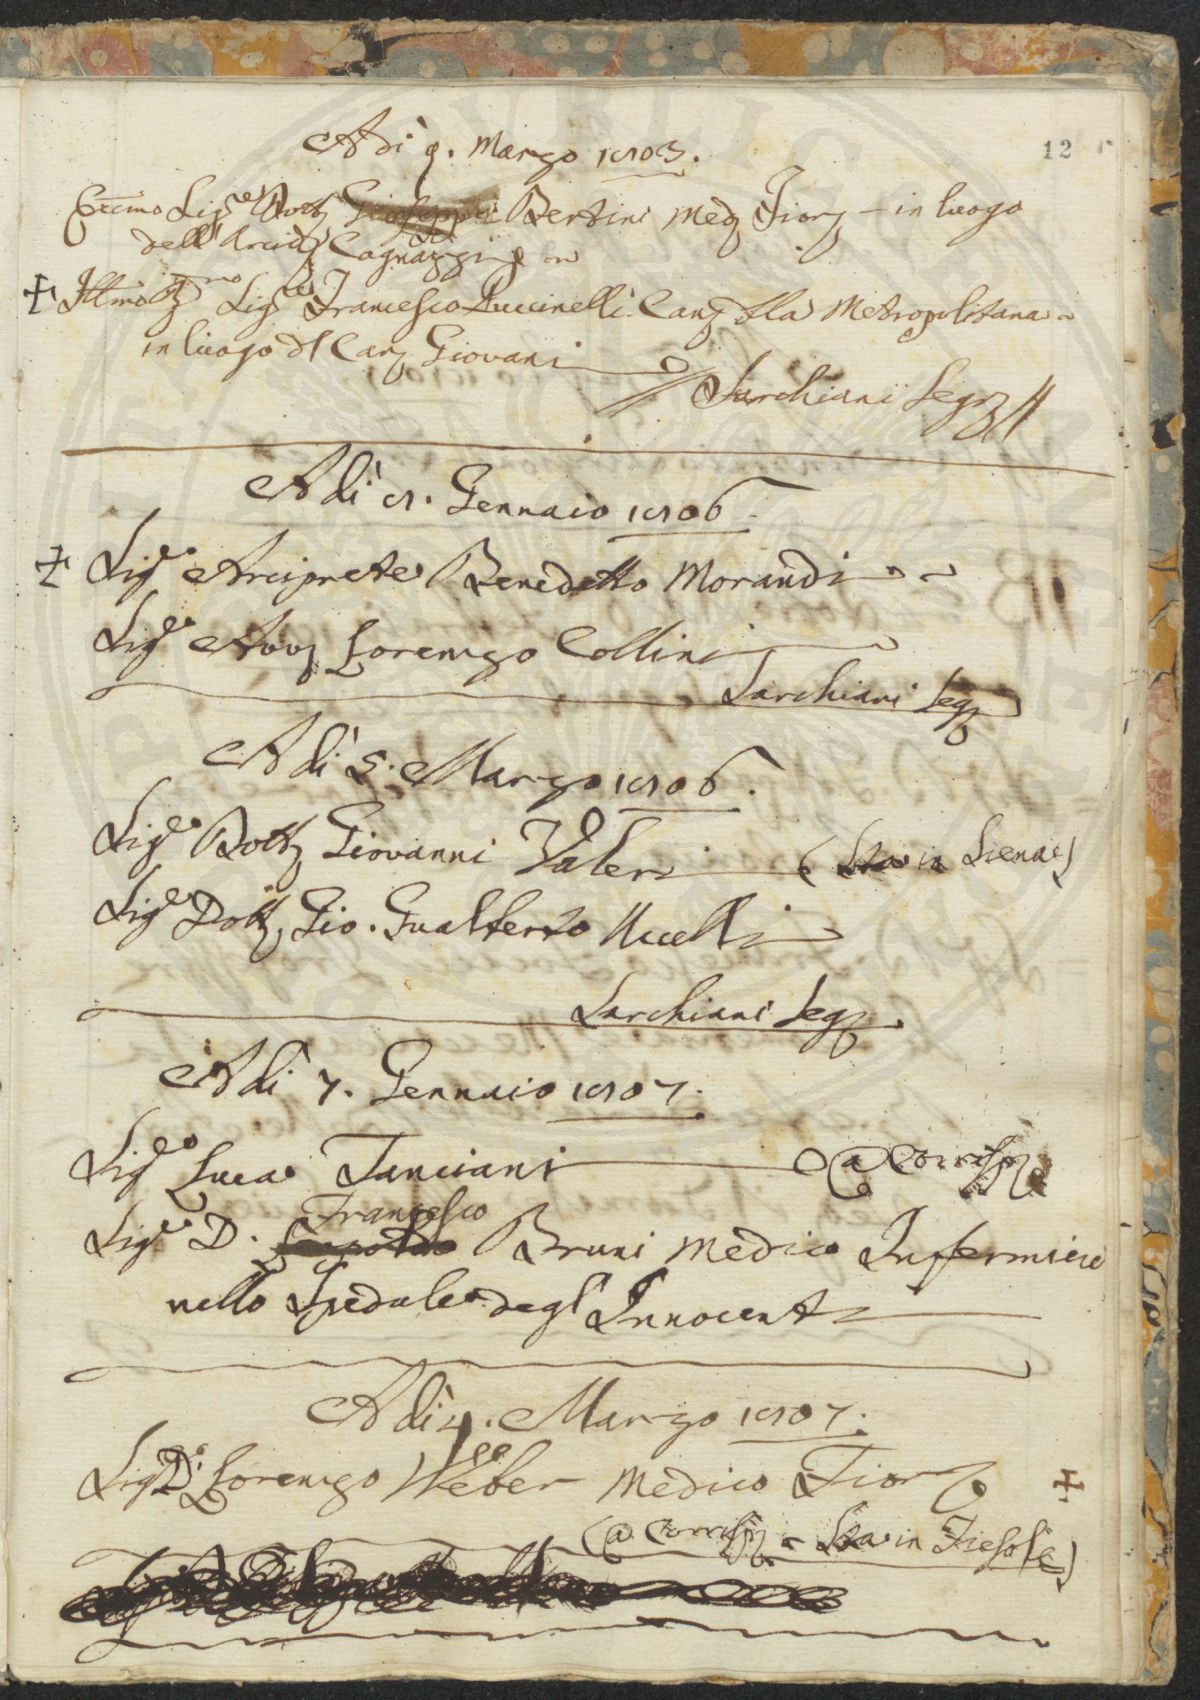 12
Adì 9. Marzo 1803.
Eccmo Sigre Dott Giuseppe Bertini Med Fior – in luogo
dell' Arcid Cagnazzi
Illmo Sige Francesco Puccinelli Can dlla Metropolitana
in luogo dl Can Giovani
Sarchiani Segr
Adì 8. Gennaio 1806.
Sige Arciprete Benedetto Morandi
Sige Avv Lorenzo Collini
Sarchiani Seg
Adì 5. Marzo 1806.
Sige Dott Giovanni Valeri (Sta in Siena)
Sige Dott Gio. Gualberto Uccelli
Sarchiani Seg
Adì 7. Gennaio 1807.
Sige Luca Tanciani a Corrisp
Francesco
Sige D. Leopoldo Bruni Medico Infermiere
nello Spedale degl' Innocenti
Adì 4. Marzo 1807.
Sig D. Lorenzo Weber Medico Fior
(a Corrisp – Sta in Fiesole)